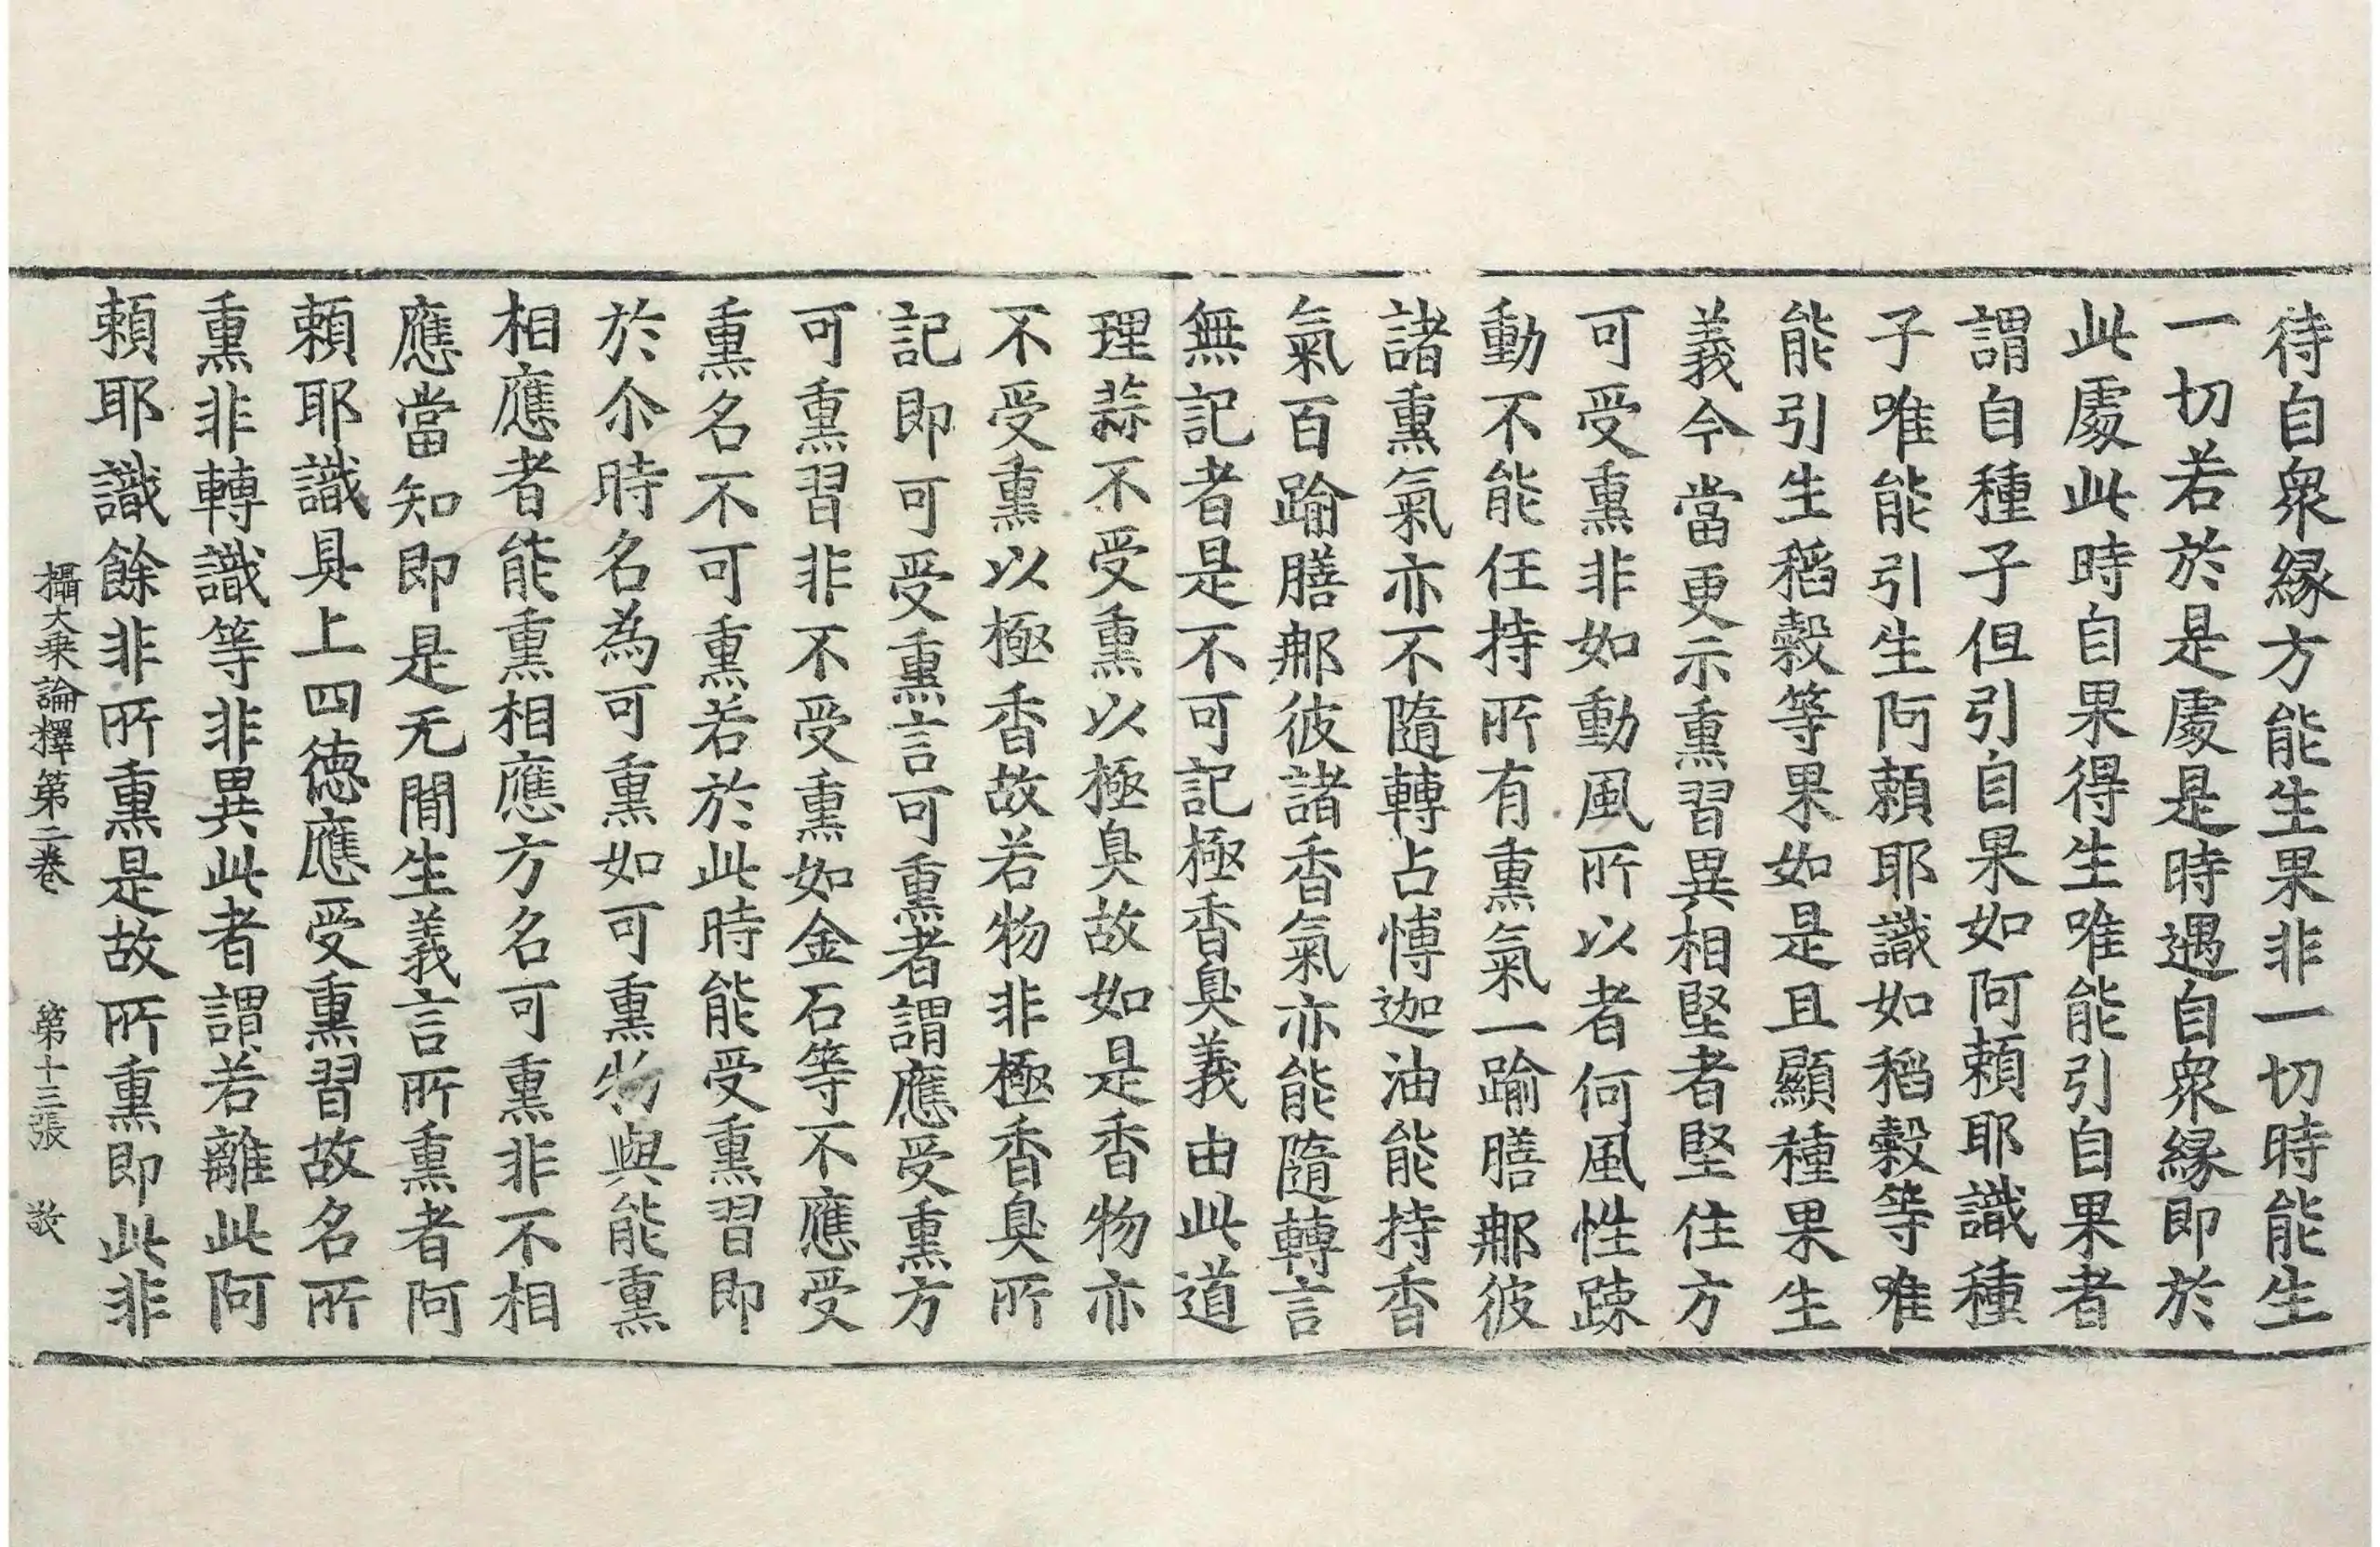 待自衆縁方能生果非一切時能生
一切若於是處是時遇自衆縁即於
此處此時自果得生唯能引自果者
謂自種子但引自果如阿頼耶識種
子唯能引生阿頼耶識如稻穀等唯
能引生稻穀等果如是且顯種果生
義今當更示熏習異相堅者堅住方
可受熏非如動風所以者何風性踈
動不能任持所有熏氣一踰膳那彼
諸熏氣亦不隨轉占愽迦油能持香
氣百踰膳那彼諸香氣亦能隨轉言
無記者是不可記極香臭義由此道
理蒜不受熏以極臭故如是香物亦
不受熏以極香故若物非極香臭所
記即可受熏言可熏者謂應受熏方
可熏習非不受熏如金石等不應受
熏名不可熏若於此時能受熏習即
於尒時名為可熏如可熏物與能熏
相應者能熏相應方名可熏非不相
應當知即是无間生義言所熏者阿
頼耶識具上四德應受熏習故名所
熏非轉識等非異此者謂若離此阿
頼耶識餘非所熏是故所熏即此非
攝大乗論釋第二卷 第十三張 敬